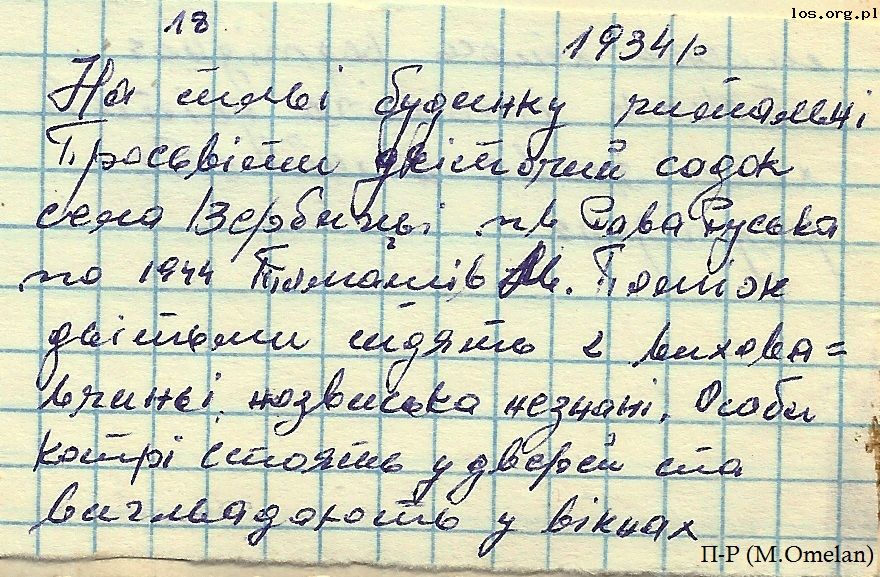 los.org.pl
18
1934 р
На тлі будинку читальні
Просьвіти дьіточий садок
села Вербиці пв Рава Руська
по 1944 Томашів М. Поміж
дьітьми сидять 2 вихова=
вчині, нозвиська незнані. Особи
котрі стоять у дверей ста
вигльадають у вікнах
П-Р (M.Omelan)